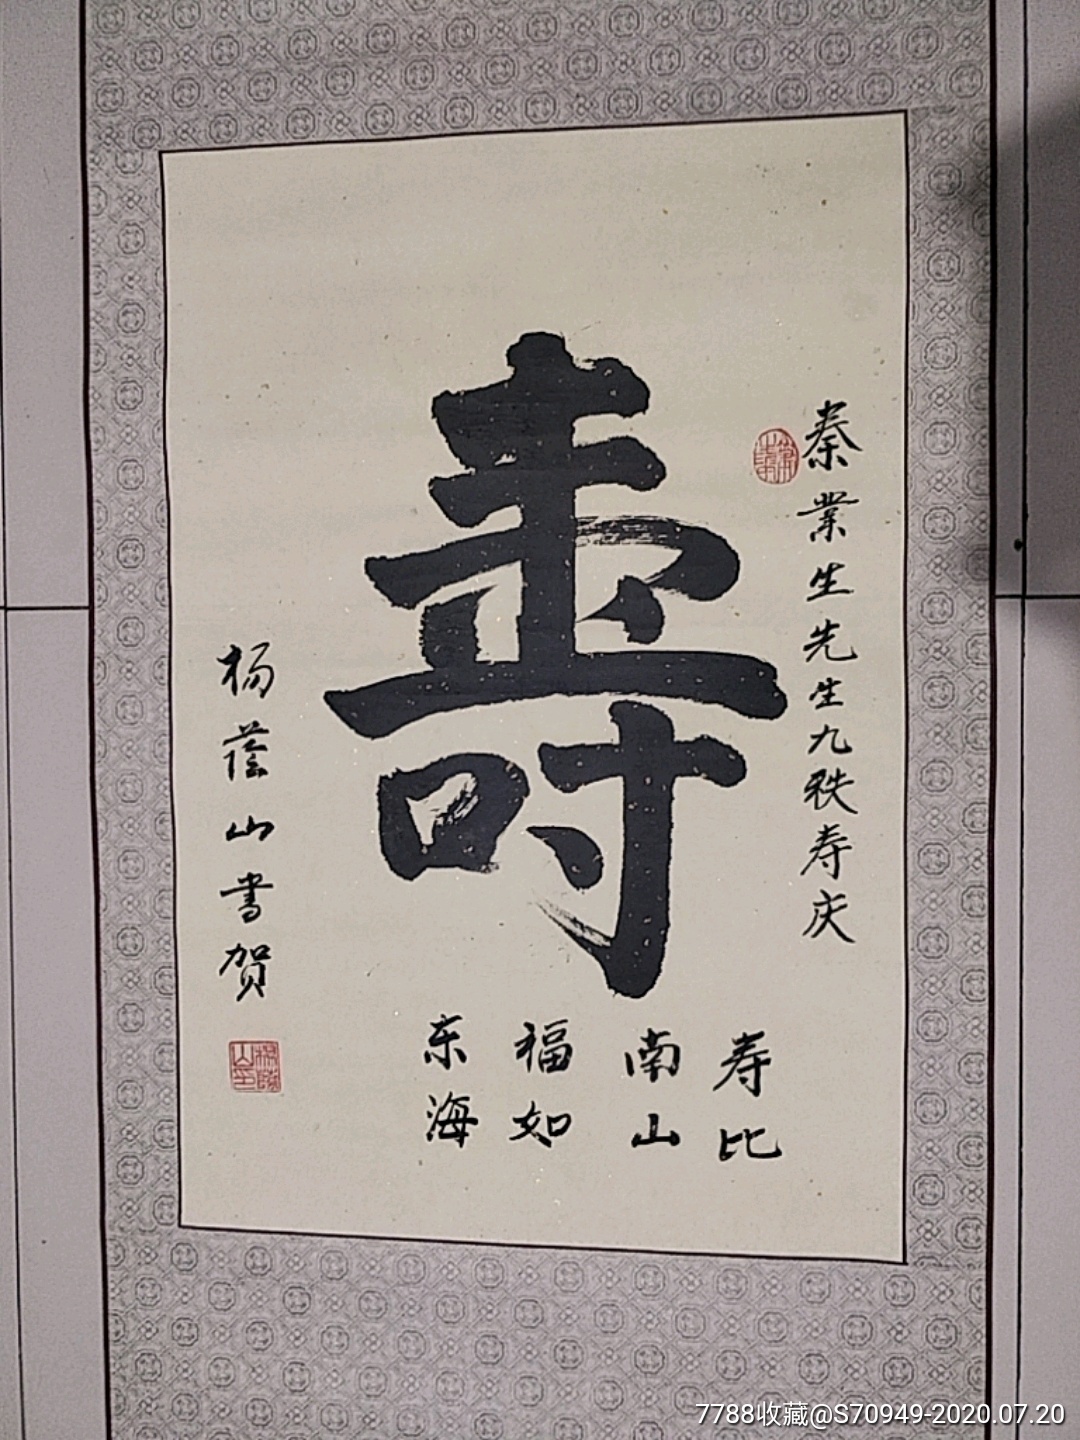 秦業生先生九秩寿庆
壽
寿比
南山
福如
东海
杨蔭山書贺
7788收藏@S70949-2020.07.20